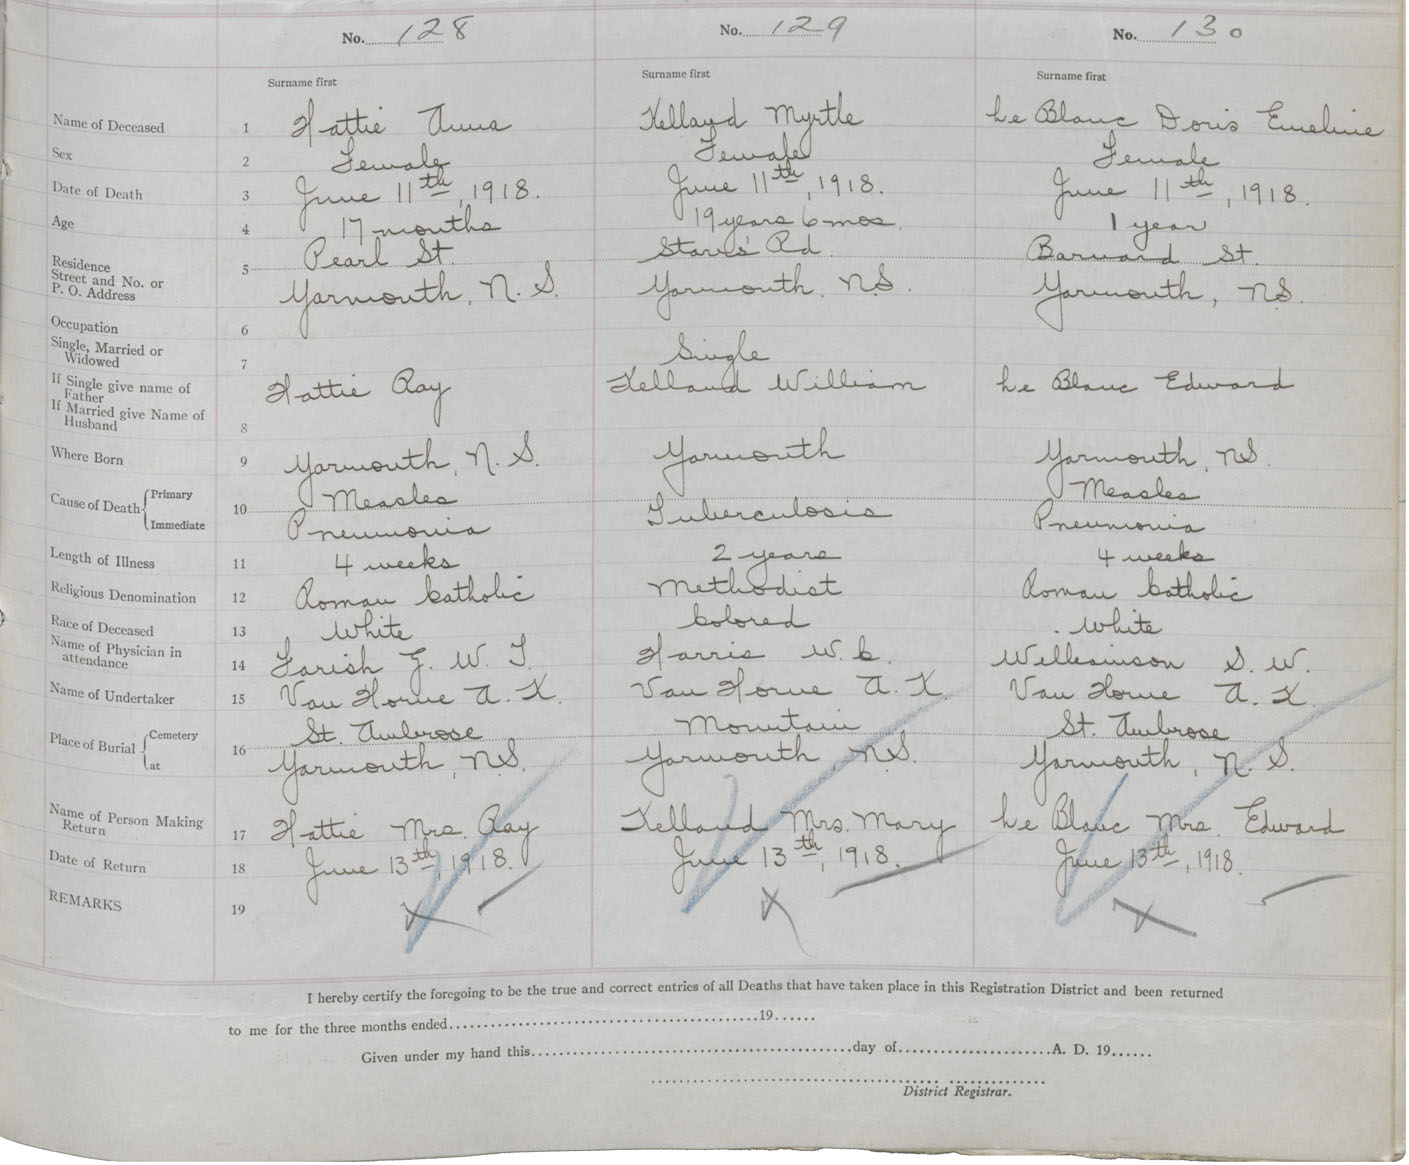 No. 128 No. 129 No. 130
Surname first Surname first Surname first
Name of Deceased 1 Hattie Anna Kelland Myrtle Le Blanc Doris Emeline
Sex 2 Female Female Female
Date of Death 3 June 11th, 1918. June 11th, 1918. June 11th, 1918.
Age 4 17 months 19 years 6 mos. 1 year
Residence Pearl St. Starrs' Rd. Barnard St.
Street and No. or 5
P. O. Address Yarmouth, N. S. Yarmouth, N.S. Yarmouth, N.S.
Occupation 6
Single, Married or
Widowed 7 Single
If Single give name of
Father Hattie Ray Kelland William Le Blanc Edward
If Married give Name of
Husband 8
Where Born 9 Yarmouth, N. S. Yarmouth Yarmouth, N.S.
Cause of Death Primary Measles Measles
10 Tuberculosis
Immediate Pneumonia Pneumonia
Length of Illness 11 4 weeks 2 years 4 weeks
Religious Denomination 12 Roman Catholic Methodist Roman Catholic
Race of Deceased 13 White Colored White
Name of Physician in
attendance 14 Farish G. W. T. Harris W. C. Williamson S. W.
Name of Undertaker 15 Van Horne A. K. Van Horne A. K. Van Horne A. K.
Place of Burial Cemetery St. Ambrose Mountain St. Ambrose
16
at Yarmouth, N.S. Yarmouth, N.S. Yarmouth, N. S.
Name of Person Making
Return 17 Hattie Mrs. Ray Kelland Mrs. Mary Le Blanc Mrs. Edward
Date of Return 18 June 13th, 1918. June 13th, 1918. June 13th, 1918.
REMARKS 19
I hereby certify the foregoing to be the true and correct entries of all Deaths that have taken place in this Registration District and been returned
to me for the three months ended..........19......
Given under my hand this..........day of..........A. D. 19......
District Registrar.